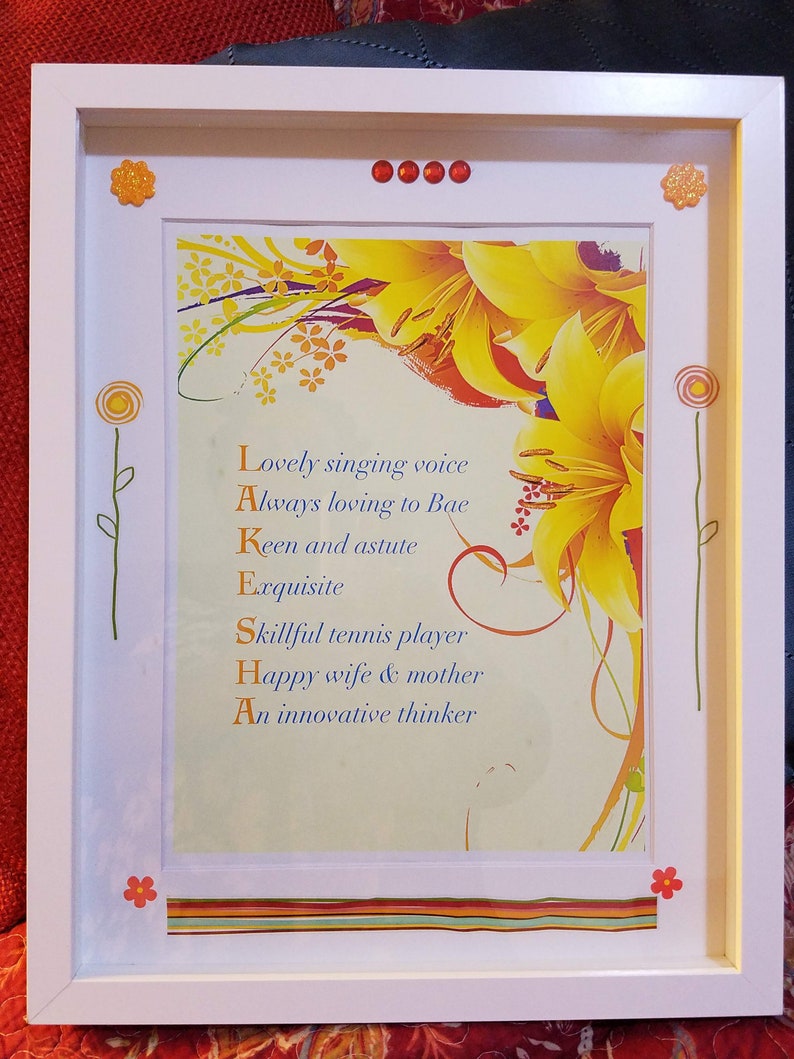 Lovely singing voice
Always loving to Bae
Keen and astute
Exquisite
Skillful tennis player
Happy wife & mother
An innovative thinker